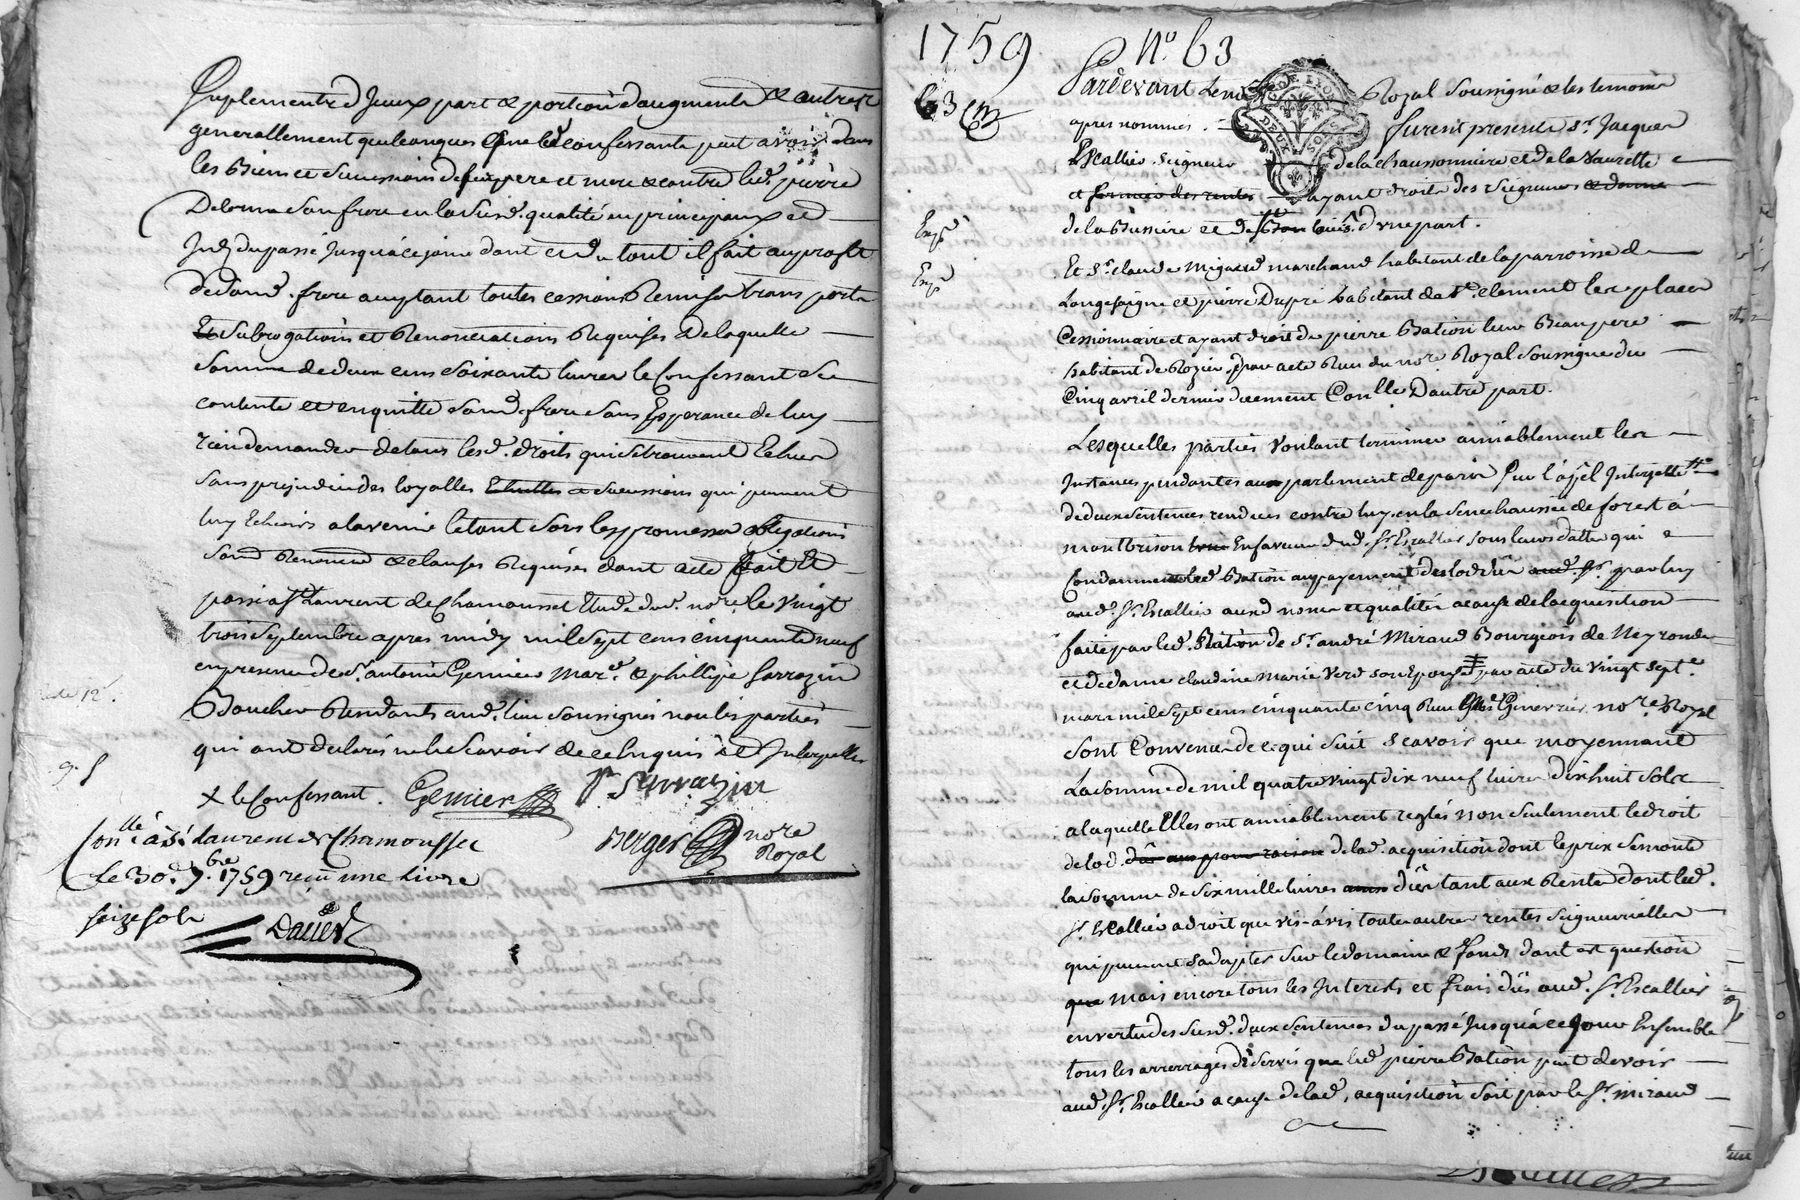 Suplement d'Iceux part & portion d'augment & autres
generallement quelconques que le confessant peut avoir dans
les Biens et Successions de feu pere et mere & contre led. pierre
Delorme son frere en la susd. qualité en principaux et
du passé Jusqu'à ce jour dont et du tout il fait au profit
dud. frere acceptant toutes cessions Remises transports
Subrogations et Renonciations Requises De laquelle
Somme de deux cens soixante livres le Confessant se
contente et en quitte sond. frere sans Esperance de luy
rien demander de tous lesd. droits qui se trouvent Echus
sans prejudice des loyalles Successions qui peuvent
luy Echeoir a lavenir le tout sous les promesses obligations
Renoncé & clauses Requises dont acte fait Et
passé a St Laurent de Chamousset Etude dud. nore le vingt
trois Septembre apres midy mil sept cens cinquante neuf
en presence de Sr. antoine Gemier mard. & philippe Sarrazin
Boucher Residants aud. lieu soussignés non les parties
qui ont declaré ne le scavoir de ce Enquis et Interpellés
X le Confessant. Gemier P Sarrazin
Berger nore
Royal
Conllé à St Laurent de Chamousset
Le 30e 7bre 1759 reçu une Livre
seize sols
Dauier
1759 No 63
63
Pardevant Le no Royal Soussigné & les temoins
apres nommés. furent presents Sr. Jacques
Escallier Seigneur de la chaussonniere et de la Vaurette
et fermier des rentes ayant droit des Seigneurs & dame
de la Bussiere et de St Bon d'une part.
Et Sr. claude Migard marchand habitant de la parroisse de
Longesaigne et pierre Dupré habitant de St. clement les places
Cessionnaires et ayant droit de pierre Bation leur Beaupere
habitant de Rozier, par acte Reçu du nore Royal Soussigné du
Cinq avril dernier duement Conllé D'autre part.
Lesquelles parties voulant terminer amiablement les
Instances pendantes au parlement de paris sur l'appel Interjetté
de deux sentences rendues contre luy en la senechaussée de forest à
montbrison En faveur dud. Sr. Escallier sous leurs dattes qui
Condamnent led. Bation au payement des lods dûs par luy
aud. Sr. Escallier aux d noms et qualités a cause de lacquisition
faite par led. Bation de Sr. andré Miraud Bourgeois de Neyronde
et de dame claudine marie Verd son Epouse par acte du vingt sept
mars mil sept cens cinquante cinq Reçu Me Ginevrier nore Royal
Sont Convenus de ce qui suit Scavoir que moyennant
La Somme de mil quatre vingt dix neuf livres dixhuit sols
a laquelle Elles ont amiablement reglés non seulement le droit
de lod. de lad. acquisition dont le prix se monte
la somme de six mille livres dûs tant aux Rentes dont led.
Sr. Escallier a droit que vis-à-vis toutes autres rentes Seigneurialles
qui peuvent s'adapter sur le domaine & fonds dont est question
que mais encore tous les Interets et frais dûs aud. Sr. Escallier
en vertu des susd. deux Sentences du passé Jusqu'à ce Jour Ensemble
tous les arrerrages de Servis que led. pierre Bation peut devoir
aud. Sr. Escallier a cause de lad. acquisition Soit par le Sr. Miraud